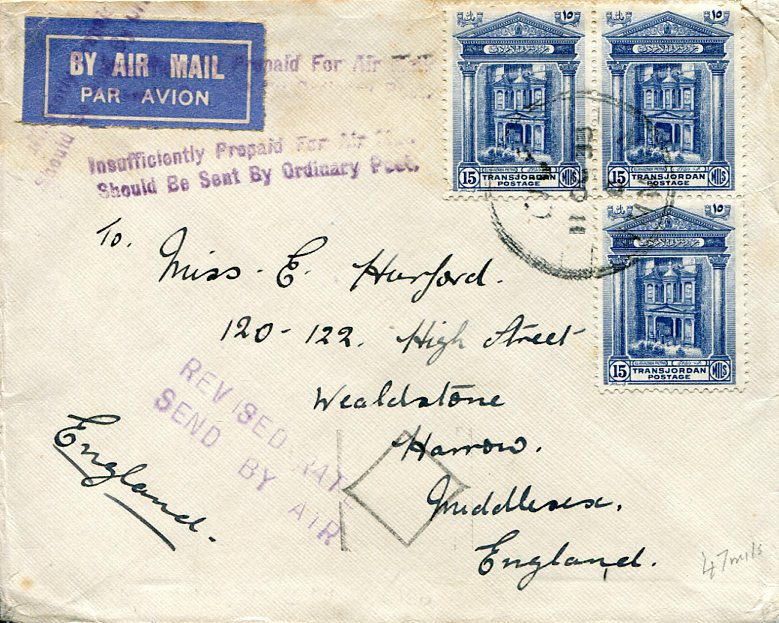 BY AIR MAIL
PAR AVION
Prepaid For Air
Insufficiently Prepaid For Air
Should Be Sent By Ordinary Post.
Should
١٥
١٥
15 TRANSJORDAN MILS
POSTAGE
15 TRANSJORDAN MILS
POSTAGE
١٥
15 TRANSJORDAN MILS
POSTAGE
To.
Miss. E. Hurford.
120-122. High Street
Wealdstone
Harrow.
Middlesex.
England.
England.
REVISED RATE
SEND BY AIR
47 mils